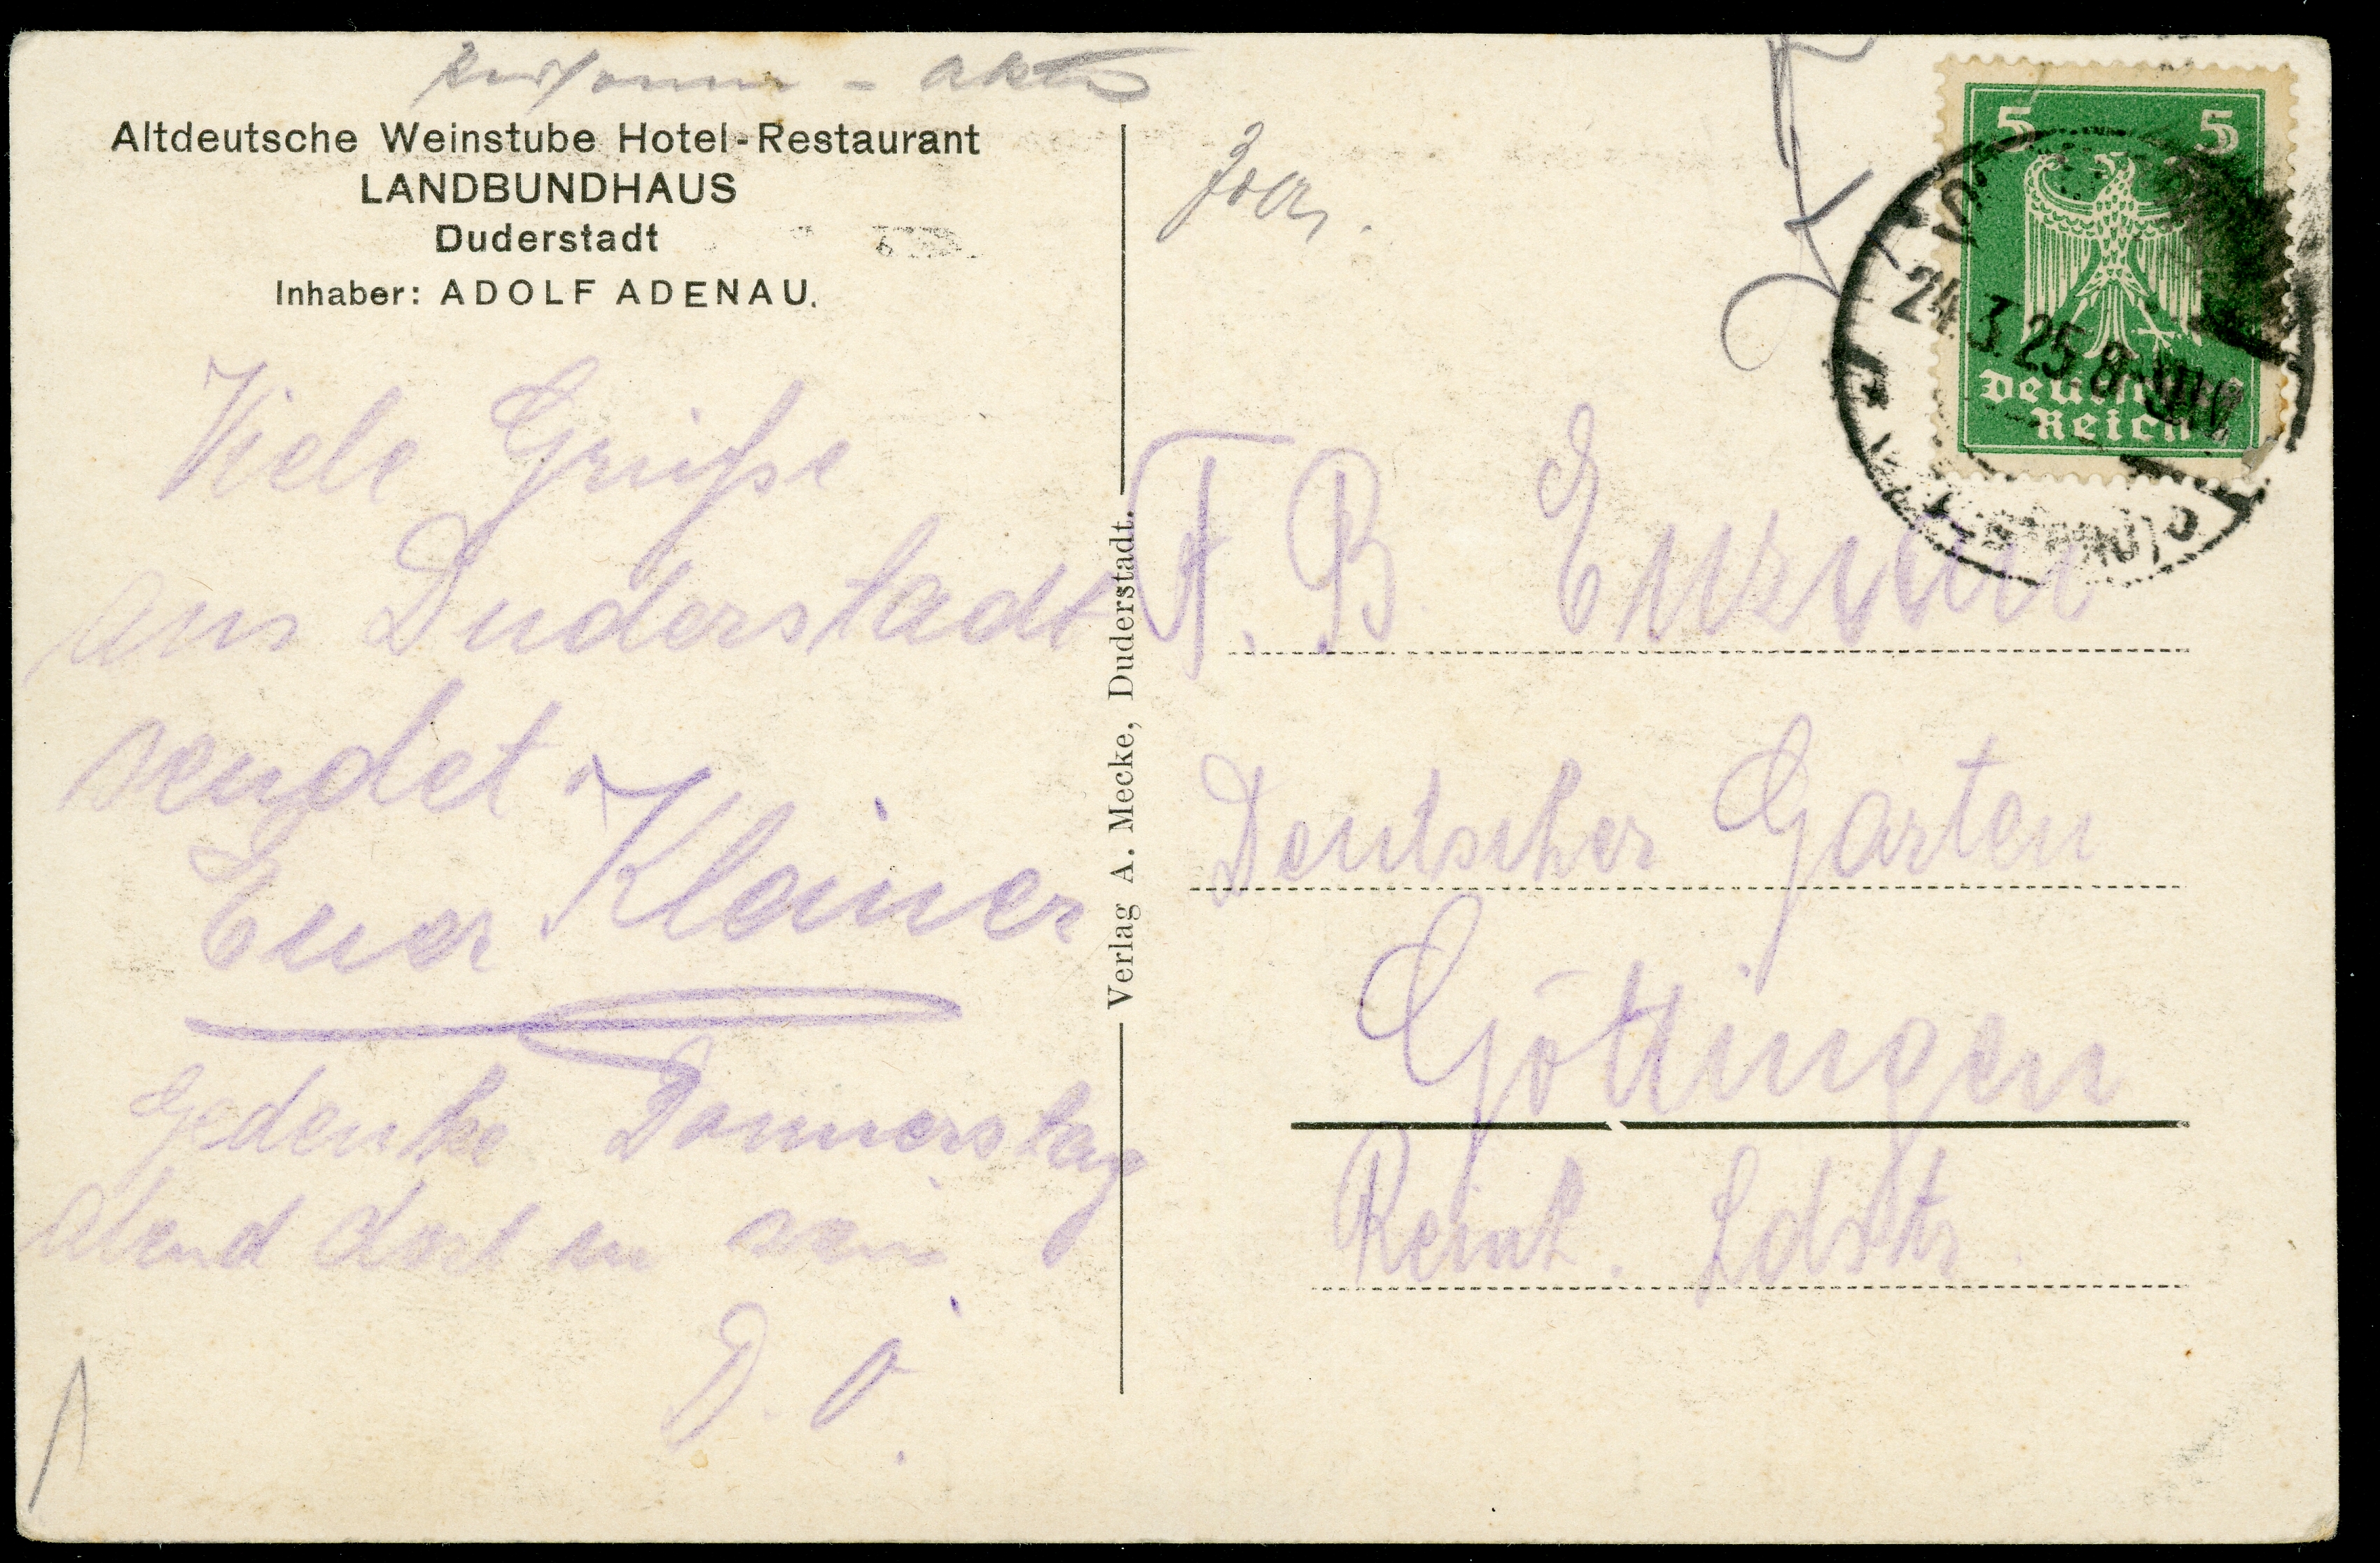 Altdeutsche Weinstube Hotel-Restaurant
LANDBUNDHAUS
Duderstadt
Inhaber: ADOLF ADENAU.
Viele Grüße
aus Duderstadt
sendet
Euer Kleiner
Gedenke Donnerstag
Abend dort zu sein
D. O.
Verlag A. Mecke, Duderstadt.
5 5
Deutsches
Reich
24.3.25.8-9N.
F. B Enzian
Deutscher Garten
Göttingen
Reinh. Ldstr.